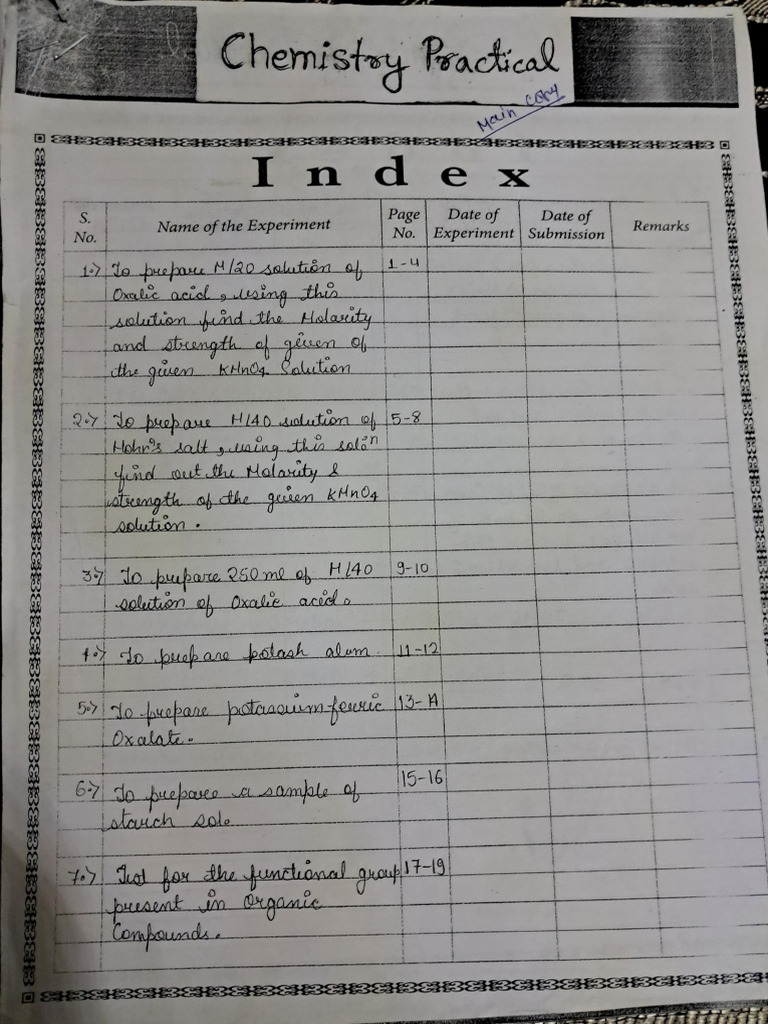 Chemistry Practical
Main Copy
Index
S. No. Name of the Experiment Page No. Date of Experiment Date of Submission Remarks
1.) To prepare M/20 solution of 1-4
Oxalic acid, using this
solution find the Molarity
and strength of given of
the given KMnO4 Solution
2.) To prepare M/40 solution of 5-8
Mohr's salt, using this solⁿ
find out the Molarity &
strength of the given KMnO4
solution.
3.) To prepare 250 ml of M/40 9-10
solution of Oxalic acid.
4.) To prepare potash alum. 11-12
5.) To prepare potassium-ferric 13-
Oxalate.
6.) To prepare a sample of 15-16
starch sol.
7.) Test for the functional group 17-19
present in Organic
Compounds.